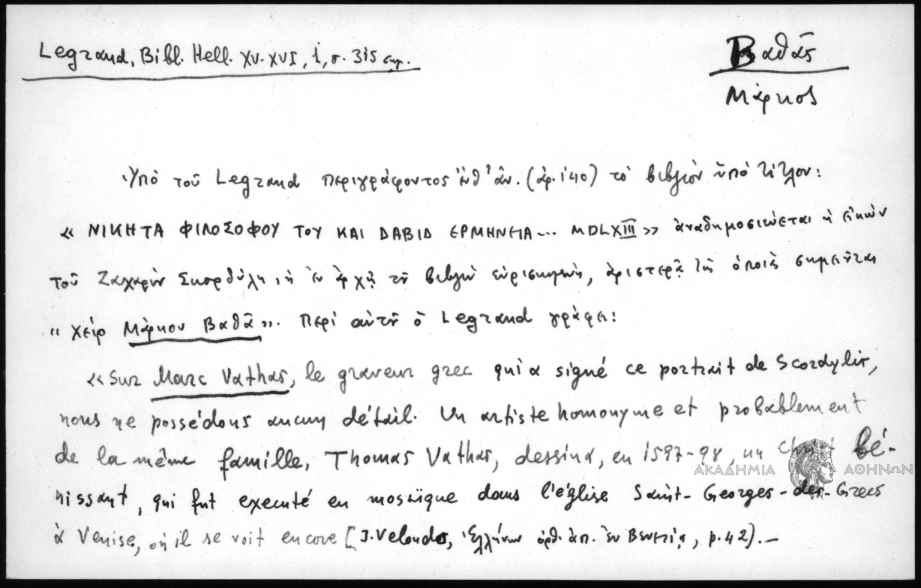 Legrand, Bibl. Hell. XV-XVI, 1, σ. 315 ἑπ.
Βαθᾶς
Μάρκος
Ὑπὸ τοῦ Legrand περιγράφοντος ἔνθ' ἀν. (ἀρ. 140) τὸ βιβλίον ὑπὸ τίτλον:
« ΝΙΚΗΤΑ ΦΙΛΟΣΟΦΟΥ ΤΟΥ ΚΑΙ ΔΑΒΙΔ ΕΡΜΗΝΕΙΑ... MDLXIII » ἀναδημοσιεύεται ἡ εἰκὼν
τοῦ Ζαχαρίου Σκορδύλη, ἡ ἐν ἀρχῇ τοῦ βιβλίου εὑρισκομένη, ἀριστερᾷ τῆς ὁποίας σημειοῦται
« χεὶρ Μάρκου Βαθᾶ ». Περὶ αὐτοῦ ὁ Legrand γράφει:
« Sur Marc Vathas, le graveur grec qui a signé ce portrait de Scordylis,
nous ne possédons aucun détail. Un artiste homonyme et probablement
de la même famille, Thomas Vathas, dessina, en 1597-98, un Christ bé-
ΑΚΑΔΗΜΙΑ ΑΘΗΝΩΝ
nissant, qui fut executé en mosaïque dans l'église Saint-Georges-des-Grecs
à Venise, où il se voit encore (J. Veloudos, Ἑλλήνων ὀρθ. ἀπ. ἐν Βενετίᾳ, p. 42). —